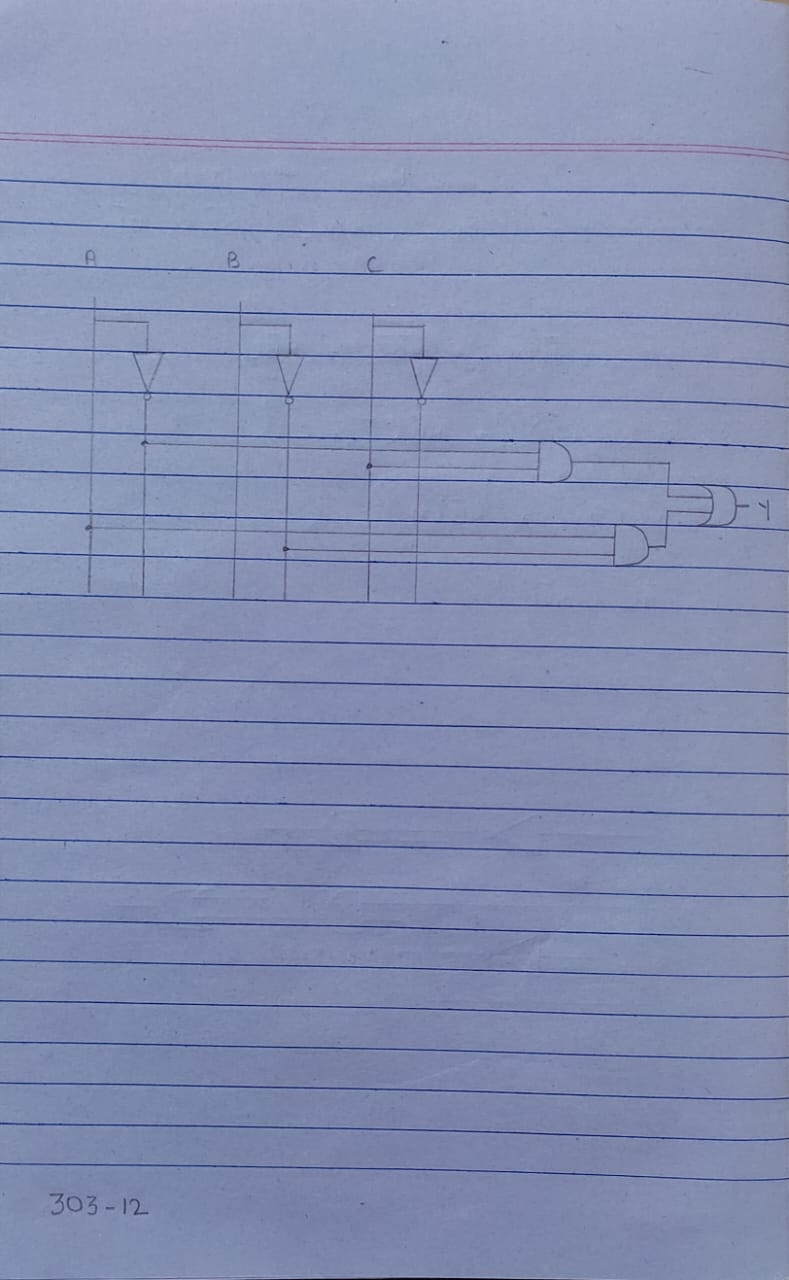 A B C
Y
303-12